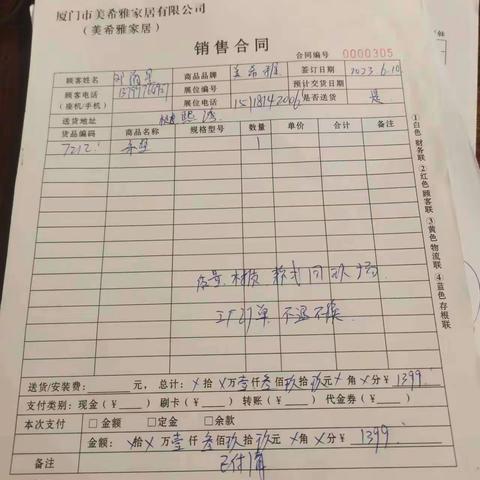 厦门市美希雅家居有限公司
（美希雅家居）
销售合同
合同编号 0000305
顾客姓名 商品品牌 美希雅 签订日期 2023.6.10
顾客电话 展位编号 预计交货日期
（座机/手机） 展位电话 15118142006 是否送货 是
送货地址
货品编码 商品名称 规格型号 数量 单价 合计 备注
7212 1
材质 款式同现场
工厂订单 不退不换
①白色 财务联 ②红色 顾客联 ③黄色 物流联 ④蓝色 存根联
送货/安装费：元，总计：×拾×万壹仟叁佰玖拾玖元×角×分￥1399
支付类别：现金（￥ ） 刷卡（￥ ） 转账（￥ ） 代金券（￥ ）
本次支付 □金额 □定金 □余款
金额：×拾×万壹仟叁佰玖拾玖元×角×分￥1399
备注 已付清